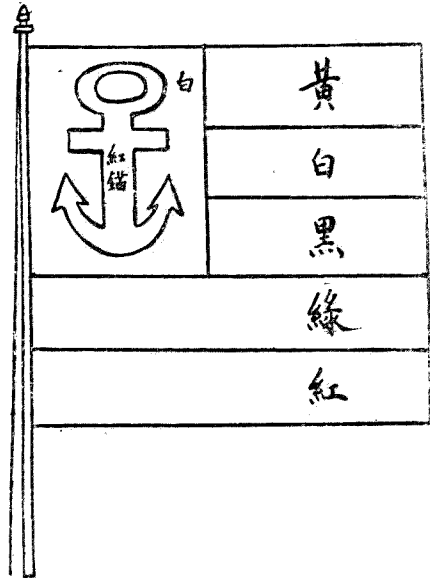 白
紅
錨
黃
白
黑
綠
紅